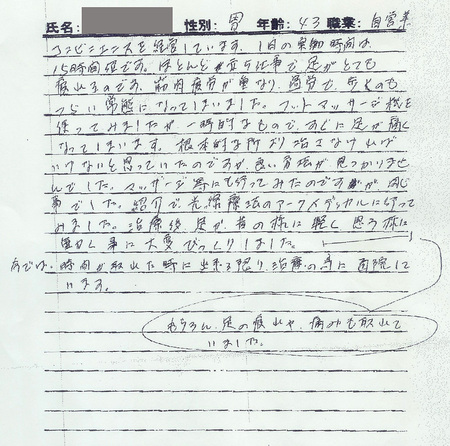 氏名: 性別: 男 年齢: 43 職業: 自営業
コンビニエンスを経営しています。1日の実働時間は
15時間位です。ほとんど立ち仕事で足がとても
疲れるのです。筋肉疲労が重なり、過労で、歩くのも
つらい常態になってしまいました。フットマッサージ機を
使ってみましたが一時的なもので、すぐに足が痛く
なってしまいます。根本的な所から治さなければ
いけないと思っていたのですが、良い方法が見つかりませ
んでした。マッサージ等にも行ってみたのですが、同じ
事でした。紹介で光線療法のアークメディカルに行って
みました。治療後、足が、昔の様に軽く思う様に
動く事に大変びっくりしました。
今では、時間が取れた時に出来る限り、治療の為に通院して
います。
もちろん、足の疲れや、痛みも取れて
いました。